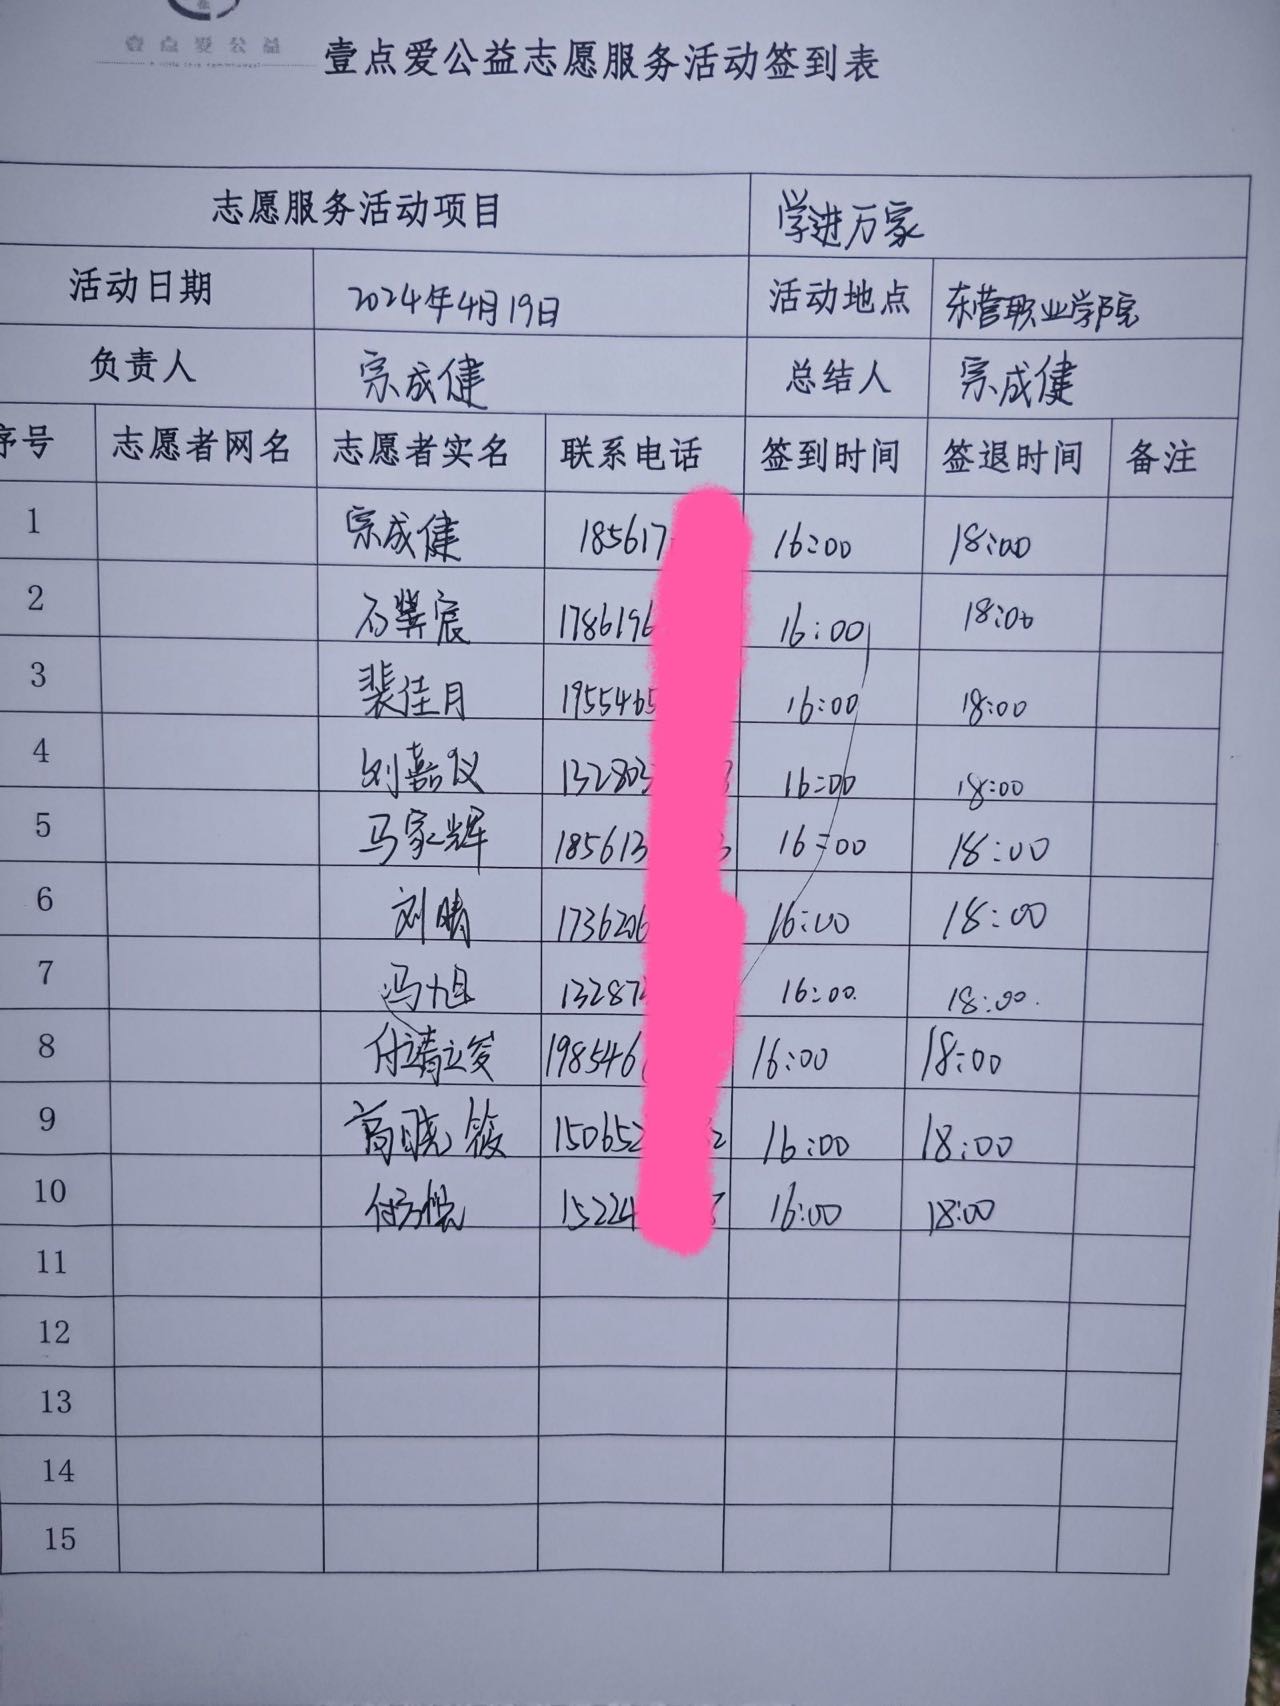 壹点爱公益
壹点爱公益志愿服务活动签到表
志愿服务活动项目 学进万家
活动日期 2024年4月19日 活动地点 东营职业学院
负责人 宗成健 总结人 宗成健
序号 志愿者网名 志愿者实名 联系电话 签到时间 签退时间 备注
1 宗成健 185617 16:00 18:00
2 石冀宸 1786196 16:00 18:00
3 裴佳月 1955465 16:00 18:00
4 刘嘉仪 132803 16:00 18:00
5 马家辉 185613 3 16:00 18:00
6 刘晴 1736206 16:00 18:00
7 冯旭 13287 16:00. 18:00.
8 198546 16:00 18:00
9 高晓筱 15065 2 16:00 18:00
10 15224 16:00 18:00
11
12
13
14
15